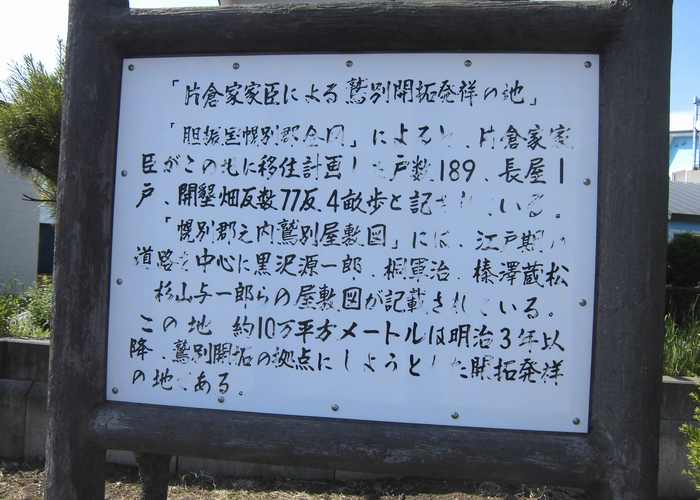 「片倉家家臣による鷲別開拓発祥の地」
「胆振国幌別郡全図」によると、片倉家家
臣がこの地に移住計画した戸数189、長屋1
戸、開墾畑反数77反4畝歩と記されている。
「幌別郡之内鷲別屋敷図」には、江戸期の
道路を中心に黒沢源一郎、桐軍治、榛澤蔵松
杉山与一郎らの屋敷図が記載されている。
この地 約10万平方メートルは明治3年以
降、鷲別開拓の拠点にしようとした開拓発祥
の地である。